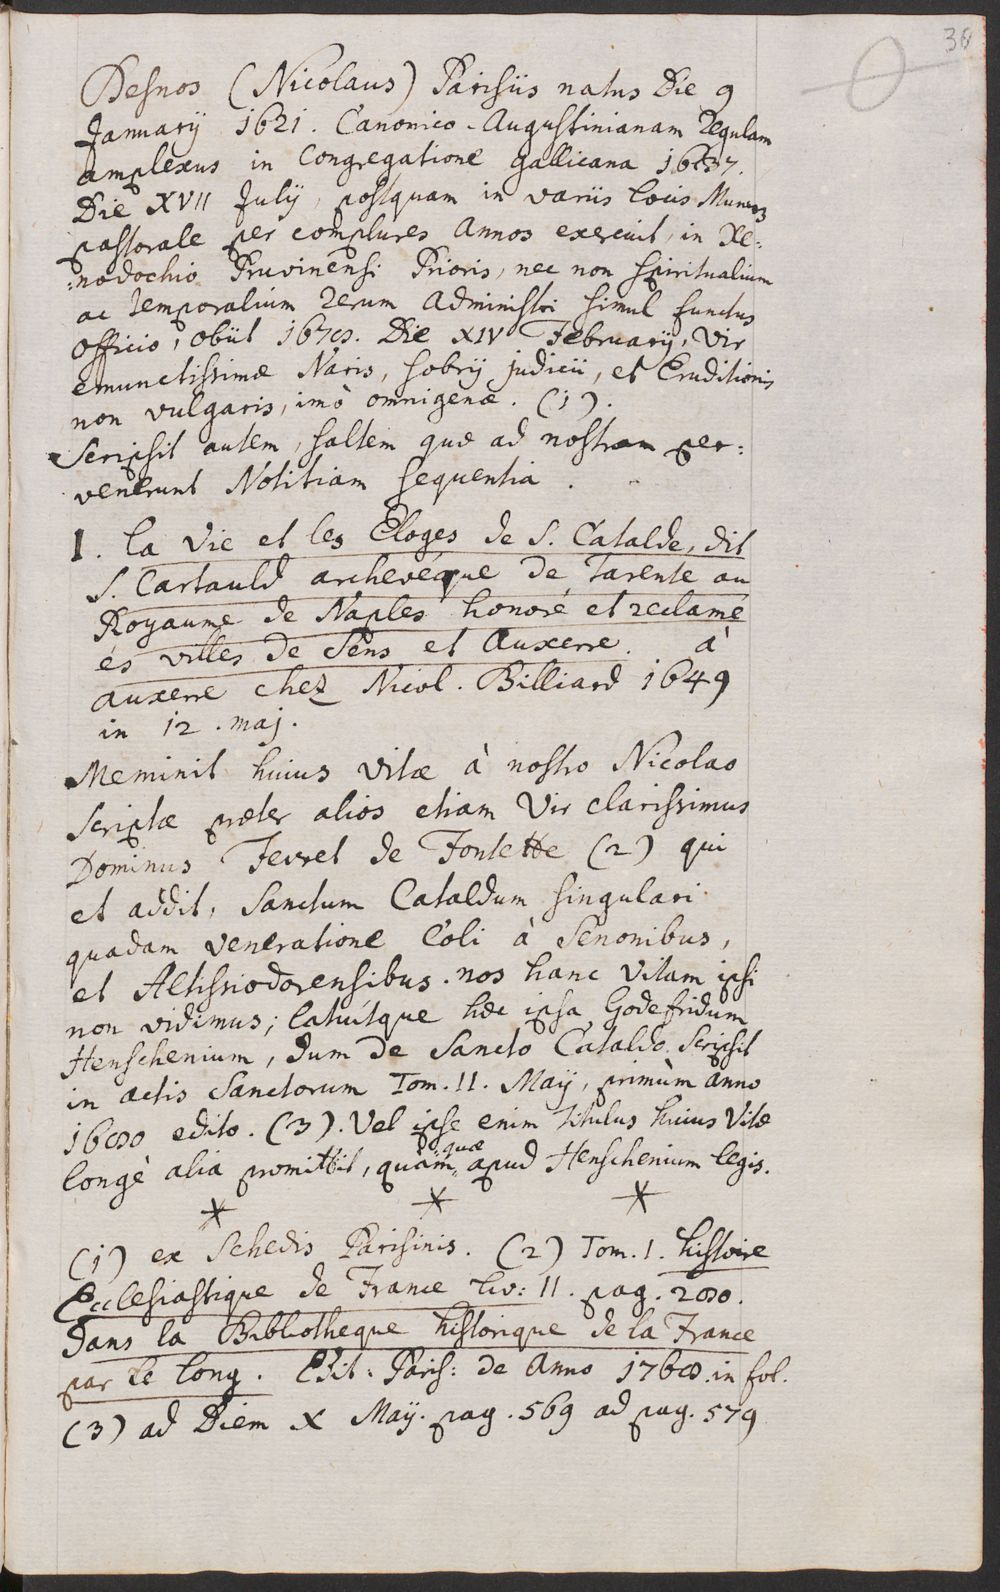 36
Desnos (Nicolaus) Parisiis natus Die 9
Januarij 1621. Canonico-Augustinianam Regulam
amplexus in Congregatione gallicana 1637.
Die XVII Julij, postquam in variis locis Munus
pastorale per complures Annos exercuit, in Xe:
:nodochio Pruvinensi Prioris, nec non spiritualium
ac temporalium rerum Administri simul functus
officio, obiit Die XIV Februarij, Vir
emunctissimæ Naris, sobrij judicii, et Eruditionis
non vulgaris, imò omnigenæ. (1).
Scripsit autem, saltem quæ ad nostram per:
venerunt Notitiam sequentia.
I. la Vie et les Eloges de S. Catalde, dit
S. Cartauld archevéque de Tarente au
Royaume de Naples honoré et reclamé
és villes de Sens et Auxerre. à
auxerre chez Nicol. Billiard 1649
in 12. maj.
Meminit huius vitæ à nostro Nicolao
scriptæ præter alios etiam Vir clarissimus
Dominus Fevret de Fontette (2) qui
et addit, Sanctum Cataldum singulari
quadam veneratione Coli à Senonibus,
et Altissiodorensibus. nos hanc Vitam ipsi
non vidimus; latuítque hæc ipsa Godefridum
Henschenium, dum de Sancto Cataldo scripsit
in actis Sanctorum Tom. II. Maij, primùm anno
1680 edito. (3). Vel ipse enim titulus huius Vitæ
longè alia promittit, quàm quæ apud Henschenium legis.
* * *
(1) ex Schedis Parisinis. (2) Tom. I. histoire
Ecclesiastique de France Liv: II. pag. 280.
dans la Bibliotheque historique de la France
par le long. Edit: Paris: de Anno 1768. in fol.
(3) ad Diem X Maij. pag. 569 ad pag. 579